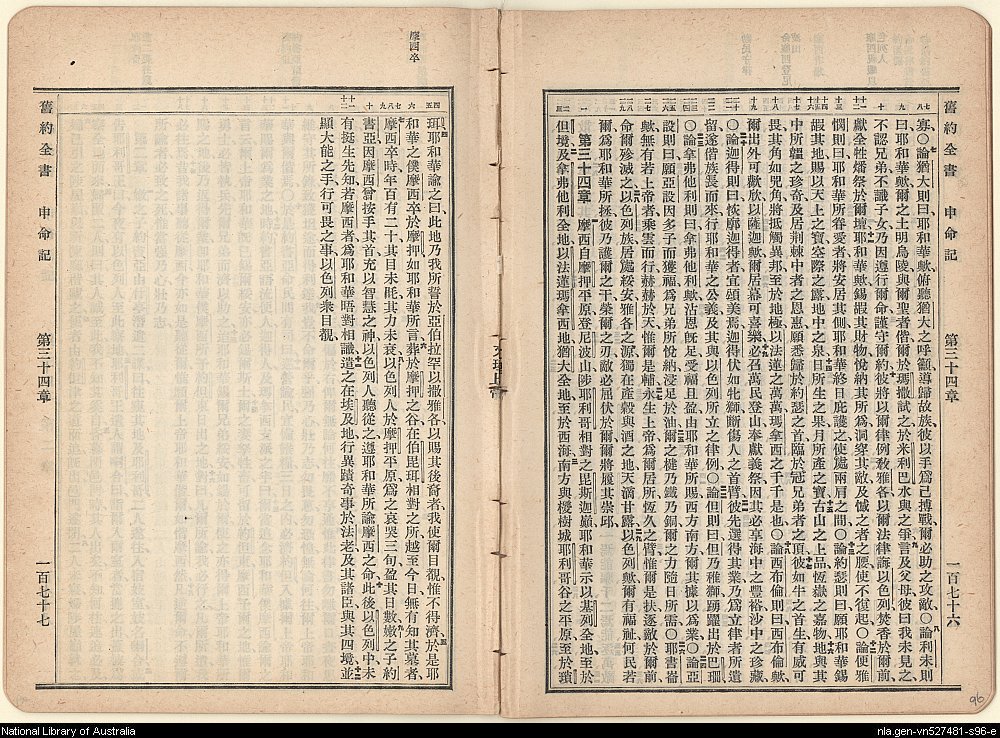 舊約全書　申命記　第三十四章　一百七十六
寡〇論猶大則曰耶和華歟俯聽猶大之呼籲導歸故族彼以手爲己搏戰爾必助之攻敵〇論利未則
曰耶和華歟爾之土明烏陵與爾聖者偕爾於瑪撒試之於米利巴水與之爭言及父母彼曰我未見之
不認兄弟不識子女乃因遵行爾命謹守爾約彼將以爾律例敎雅各以爾法律誨以色列焚香於爾前
獻全牲燔祭於爾壇耶和華歟錫嘏其財物悅納其所爲洞穿其敵及憾之者之腰使不復起〇論便雅
憫則曰耶和華所眷愛者將安居其側耶和華終日庇護之使處兩肩之間〇論約瑟則曰願耶和華錫
嘏其地賜以天上之寶空際之露地中之泉日所生之果月所產之寶古山之上品恆嶽之嘉物地與其
中所韞之珍奇及居荆棘中者之恩惠願悉歸於約瑟之首臨於冠兄弟者之頂彼如牛之首生有威可
畏其角如兕角將抵觸異邦至於地極以法蓮之萬萬瑪拿西之千千是也〇論西布倫則曰西布倫歟
爾出外可歡欣以薩迦歟爾居幕可喜樂必召萬民登山奉獻義祭因其必享海中之豐裕沙中之珍藏
〇論迦得則曰恢廓迦得者宜頌美焉迦得伏如牝獅斷傷人之首臂彼先選得其業乃爲立律者所遺
留遂偕族長而來行耶和華之公義及其與以色列所立之律例〇論但則曰但乃稚獅踴躍出於巴珊
〇論拿弗他利則曰拿弗他利歟沾恩旣足受福且盈由耶和華所賜西方南方爾其據以爲業〇論亞
設則曰願亞設因多子而獲福爲兄弟所悅納浸足於油爾之楗乃鐵乃銅爾之力隨日所需〇耶書崙
歟無有若上帝者乘雲而行赫赫於天惟爾是輔永生上帝爲爾居所恆久之臂惟爾是扶逐敵於爾前
命爾殄滅之以色列族居處綏安雅各之源獨在產穀與酒之地天滴甘露以色列歟爾有福祉何民若
爾爲耶和華所拯彼乃護爾之干榮爾之刃敵必屈伏於爾爾將履其崇邱
第三十四章　摩西自摩押平原登尼波山陟耶利哥相對之毘斯迦巔耶和華示以基列全地至於
但境及拿弗他利全地以法蓮瑪拿西地猶大全地至於西海南方與㮴樹城耶利哥谷之平原至於瑣
96
摩西卒
珥耶和華諭之曰此地乃我所誓於亞伯拉罕以撒雅各以賜其後裔者我使爾目覩惟不得濟於是耶
和華之僕摩西卒於摩押如耶和華所言葬於摩押之谷在伯毘珥相對之所越至今日無有知其墓者
摩西卒時年百有二十其目未眊其力未衰以色列人於摩押平原爲之哀哭三旬盈其日數嫩之子約
書亞因摩西曾按手其首充以智慧之神以色列人聽從之遵耶和華所諭摩西之命此後以色列中未
有挺生先知若摩西者爲耶和華晤對相識遣之在埃及地行異蹟奇事於法老及其諸臣與其四境並
顯大能之手行可畏之事以色列衆目覩
舊約全書　申命記　第三十四章　一百七十七
National Library of Australia
nla.gen-vn527481-s96-e